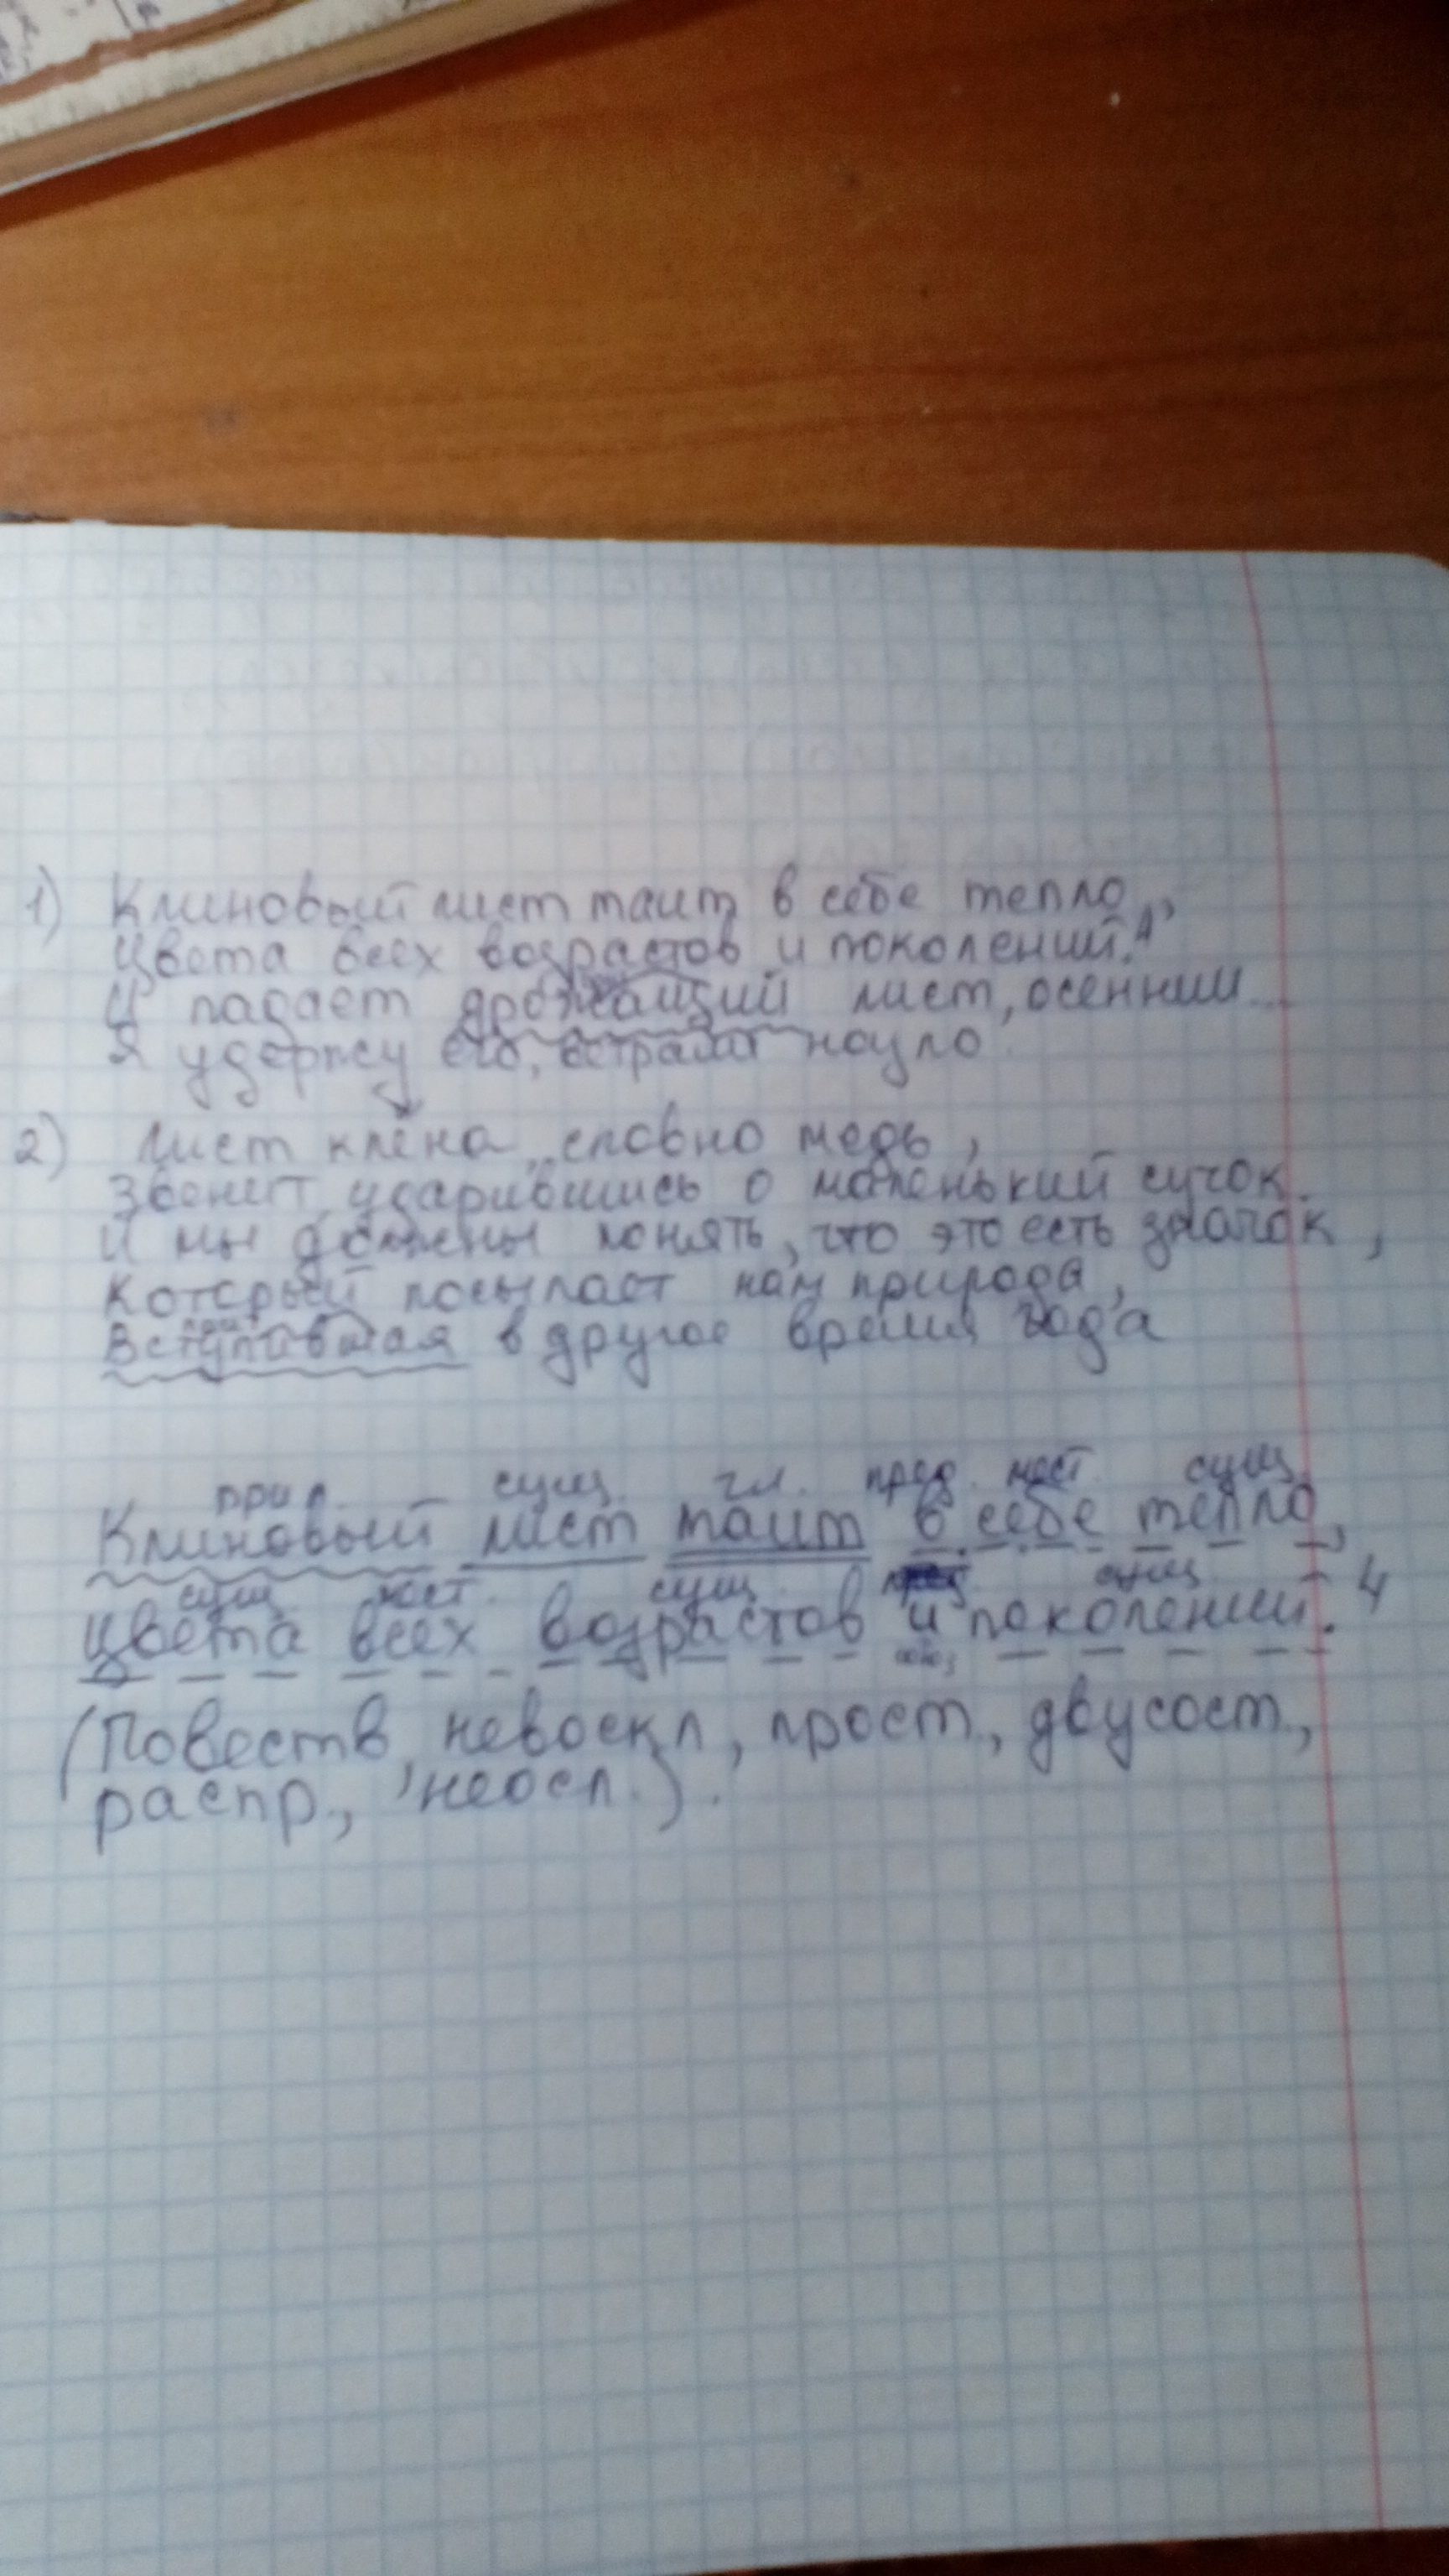 1) Клиновый лист таит в себе тепло,
Цвета всех возрастов и поколений.4
И падает дрожащий лист, осенний
Я удержу его, назло
2) Лист клёна, словно медь,
Звенит, ударившись о маленький сучок.
И мы должны понять, что это есть значок,
Который посылает нам природа,
Вступившая в другое время года
прил. сущ. гл. пред. мест. сущ.
Клиновый лист таит в себе тепло,
сущ. мест. сущ. сущ. 4
Цвета всех возрастов и поколений.
союз
(Повеств, невоскл, прост., двусост.,
распр., неосл.).